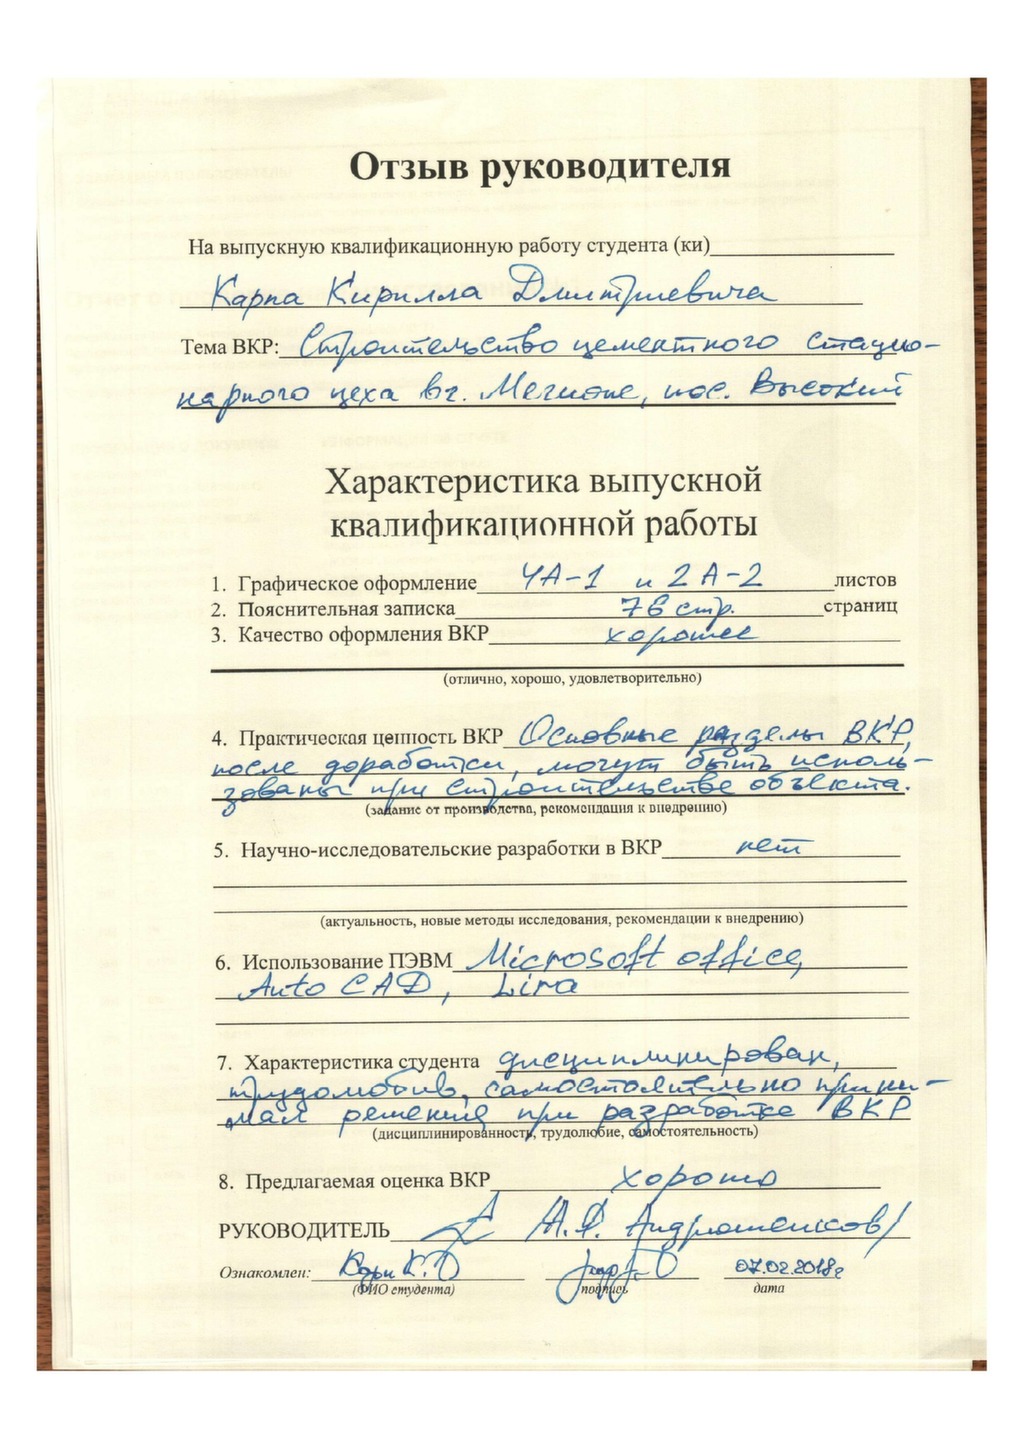 Отзыв руководителя
На выпускную квалификационную работу студента (ки)
Карпа Кирилла Дмитриевича
Тема ВКР: Строительство цементного стацио-
нарного цеха в г. Мегионе, пос. Высокий
Характеристика выпускной
квалификационной работы
1. Графическое оформление 4А-1 и 2А-2 листов
2. Пояснительная записка 76 стр. страниц
3. Качество оформления ВКР хорошее
(отлично, хорошо, удовлетворительно)
4. Практическая ценность ВКР Основные разделы ВКР,
после доработки, могут быть исполь-
зованы при строительстве объекта.
(задание от производства, рекомендация к внедрению)
5. Научно-исследовательские разработки в ВКР нет
(актуальность, новые методы исследования, рекомендации к внедрению)
6. Использование ПЭВМ Microsoft office,
Auto CAD, Lira
7. Характеристика студента дисциплинирован,
трудолюбив, самостоятельно прини-
мал решения при разработке ВКР
(дисциплинированность, трудолюбие, самостоятельность)
8. Предлагаемая оценка ВКР хорошо
РУКОВОДИТЕЛЬ А.Ф. Андрюшенков/
Ознакомлен: Карп К.Д 07.02.2018г
(ФИО студента) подпись дата